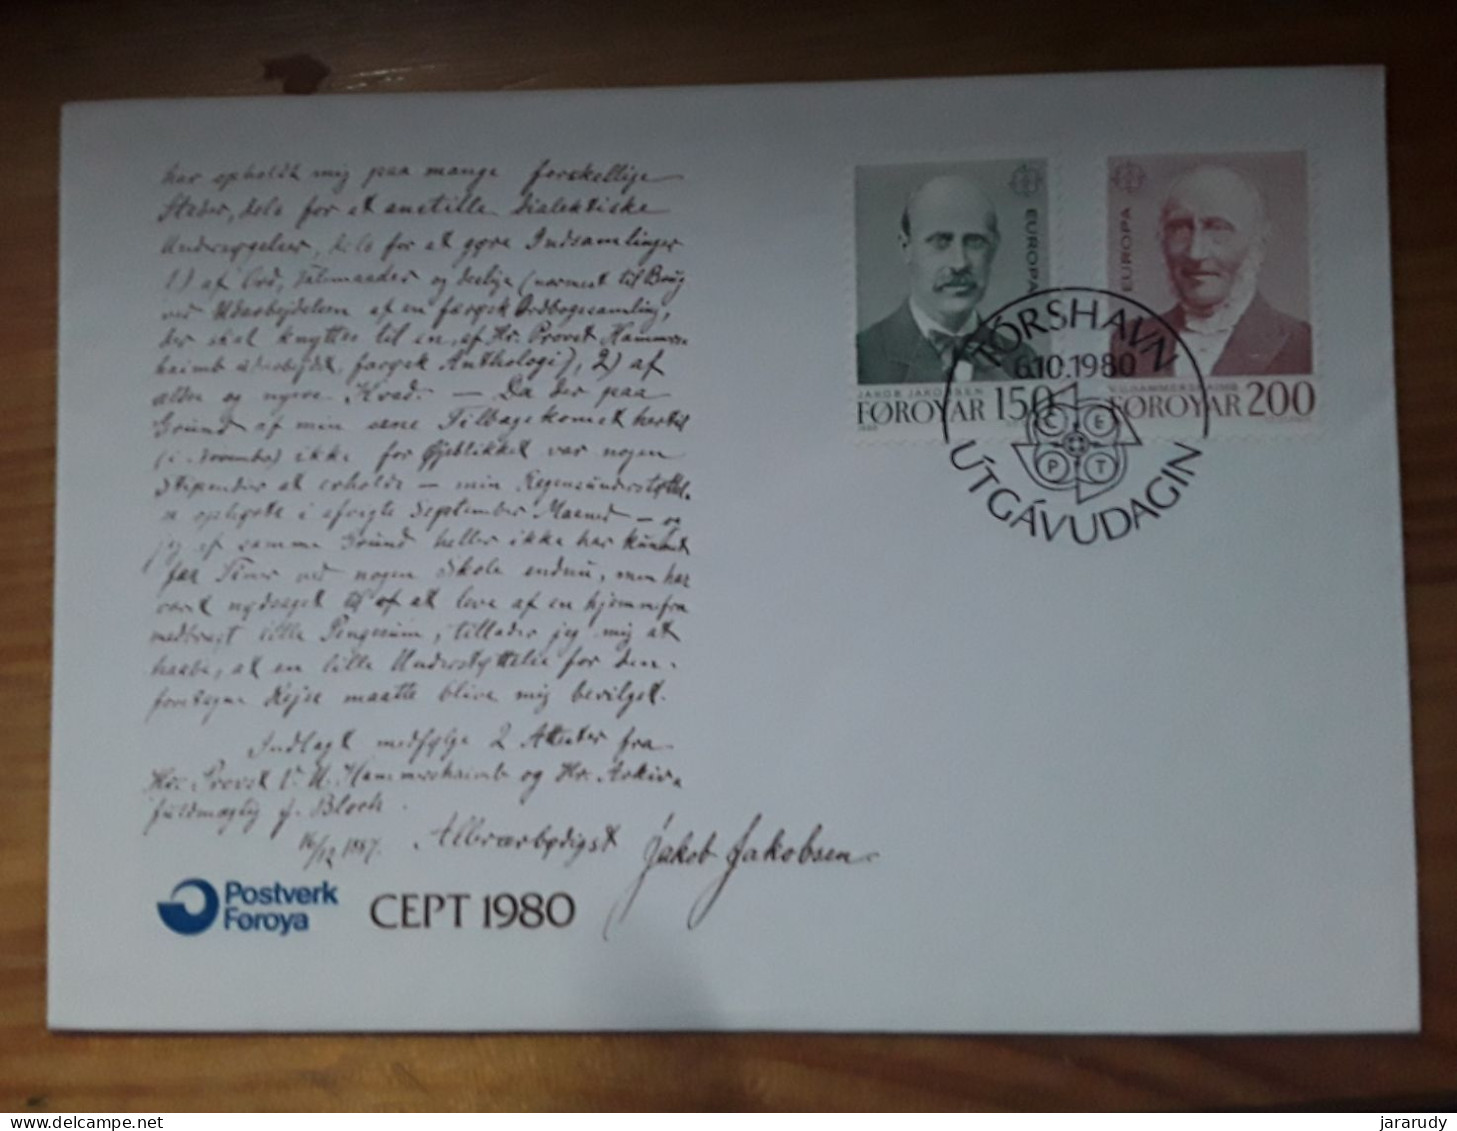 har opholdt mig paa mange forskellige
Steder, dels for at anstille dialektiske
Undersøgelser, dels for at gøre Indsamlinger
1) af Ord, Talemaader og deslige (nærmest til Brug
ved Udarbejdelsen af en færøsk Ordbogssamling,
der skal knyttes til en, af Hr. Provst Hammers-
haimb udarbejdet, færøsk Anthologi), 2) af
ældre og nyere Kvad. — Da der paa
Grund af min sene Tilbagekomst hertil
(i November) ikke for Øjeblikket var nogen
Stipendier at erholde — min Regensunderstøttel-
se ophørte i afvigte September Maaned — og
jeg af samme Grund heller ikke har kunnet
faa Timer ved nogen Skole endnu, men har
været nødsaget til at leve af en hjemmefra
medbragt lille Pengesum, tillader jeg mig at
haabe, at en lille Understøttelse for den
foretagne Rejse maatte blive mig bevilget.
Indlagt medfølge 2 Attester fra
Hr. Provst V. U. Hammershaimb og Hr. Arkiv-
fuldmægtig J. Bloch.
16/12 1887. Allerærbødigst Jakob Jakobsen
Postverk
Føroya
CEPT 1980
EUROPA
JAKOB JAKOBSEN
FØROYAR 150
EUROPA
V.U.HAMMERSHAIMB
FØROYAR 200
TÓRSHAVN
6.10.1980
C E
P T
ÚTGÁVUDAGIN
www.delcampe.net
jararudy